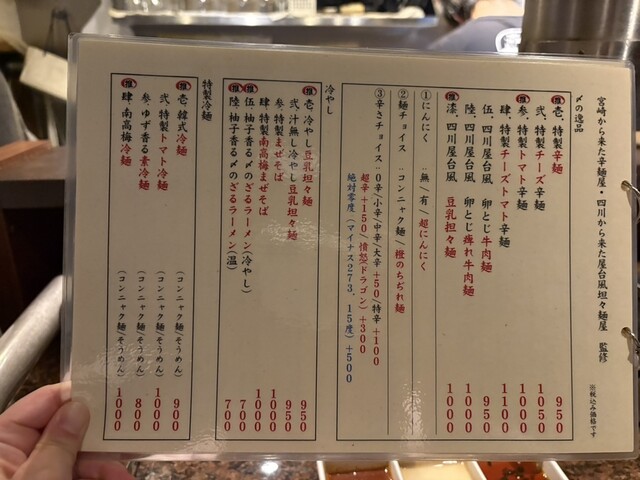 宮崎から来た辛麺屋・四川から来た屋台風坦々麺屋 監修
※税込み価格です
〆の逸品
推 壱、特製辛麺 950
弐、特製チーズ辛麺 1050
推 参、特製トマト辛麺 1000
肆、特製チーズトマト辛麺 1100
伍、四川屋台風 卵とじ牛肉麺 950
陸、四川屋台風 卵とじ痺れ牛肉麺 1000
推 漆、四川屋台風 豆乳担々麺 1000
①にんにく ‥無/有/超にんにく
②麺チョイス ‥コンニャク麺/橙のちぢれ麺
③辛さチョイス‥0辛/小辛/中辛/大辛+50/特辛+100
超辛+150/憤怒(ドラゴン)+300
絶対零度(マイナス273.15度)+500
冷やし
推 壱 冷やし豆乳坦々麺 950
弐 汁無し冷やし豆乳坦々麺 950
参 特製まぜそば 1000
肆 特製南高梅まぜそば 1000
推 伍 柚子香る〆のざるラーメン(冷やし) 700
推 陸 柚子香る〆のざるラーメン(温) 700
特製冷麺
推 壱 韓式冷麺 (コンニャク麺/そうめん) 900
弐 特製トマト冷麺 (コンニャク麺/そうめん) 1000
参 ゆず香る素冷麺 (コンニャク麺/そうめん) 800
推 肆 南高梅冷麺 (コンニャク麺/そうめん) 1000